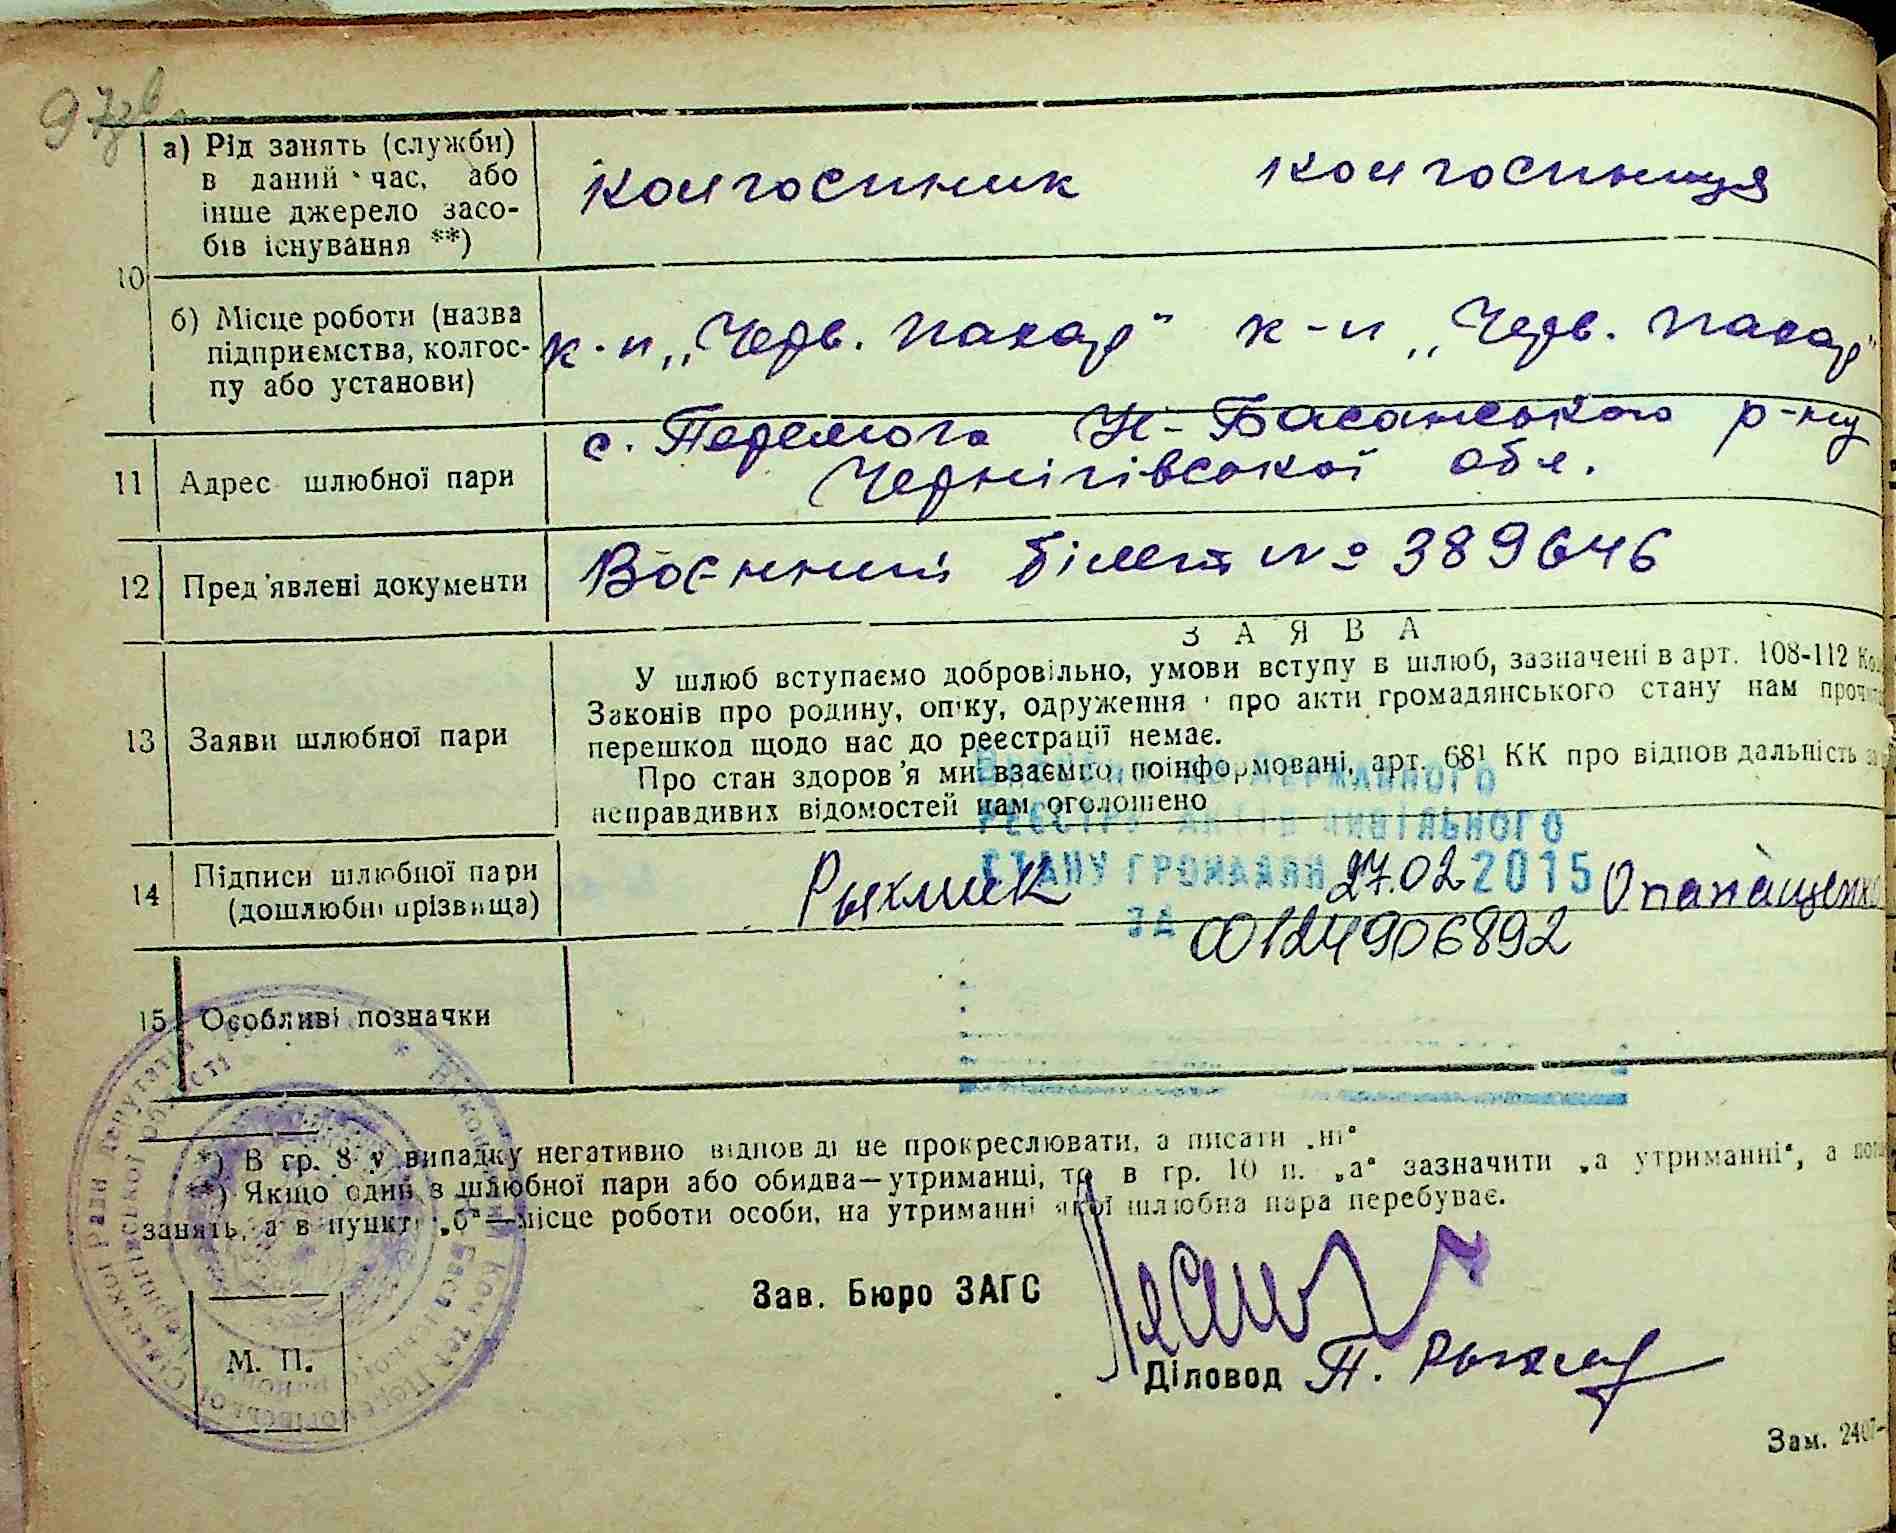 97зв.
10
а) Рід занять (служби)
в даний час, або
інше джерело засо-
бів існування **)
колгоспник колгоспниця
б) Місце роботи (назва
підприємства, колгос-
пу або установи)
к-п „Черв. Пахар" к-п „Черв. Пахар"
11 Адрес шлюбної пари
с. Перемога Н-Басанського р-ну
Чернігівської обл.
12 Пред'явлені документи
Воєнний білет № 389646
13 Заяви шлюбної пари
ЗАЯВА
У шлюб вступаємо добровільно, умови вступу в шлюб, зазначені в арт. 108-112
Законів про родину, опіку, одруження і про акти громадянського стану нам
перешкод щодо нас до реєстрації немає.
Про стан здоров'я ми взаємно поінформовані, арт. 68¹ КК про відповідальність за
неправдивих відомостей нам оголошено
ДЕРЖАВНОГО
РЕЄСТРУ АКТІВ ЦИВІЛЬНОГО
СТАНУ ГРОМАДЯН 27.02 2015
ЗА 00124906892
14 Підписи шлюбної пари
(дошлюбні прізвища)
Опанащенко
15 Особливі позначки
*) В гр. 8 у випадку негативної відповіді не прокреслювати, а писати „ні"
**) Якщо один з шлюбної пари або обидва—утриманці, то в гр. 10 п. „а" зазначити „а утриманні", а
занять, а в пункті „б"—місце роботи особи, на утриманні якої шлюбна пара перебуває.
Зав. Бюро ЗАГС
Діловод П.
М. П.
Зам. 2407-